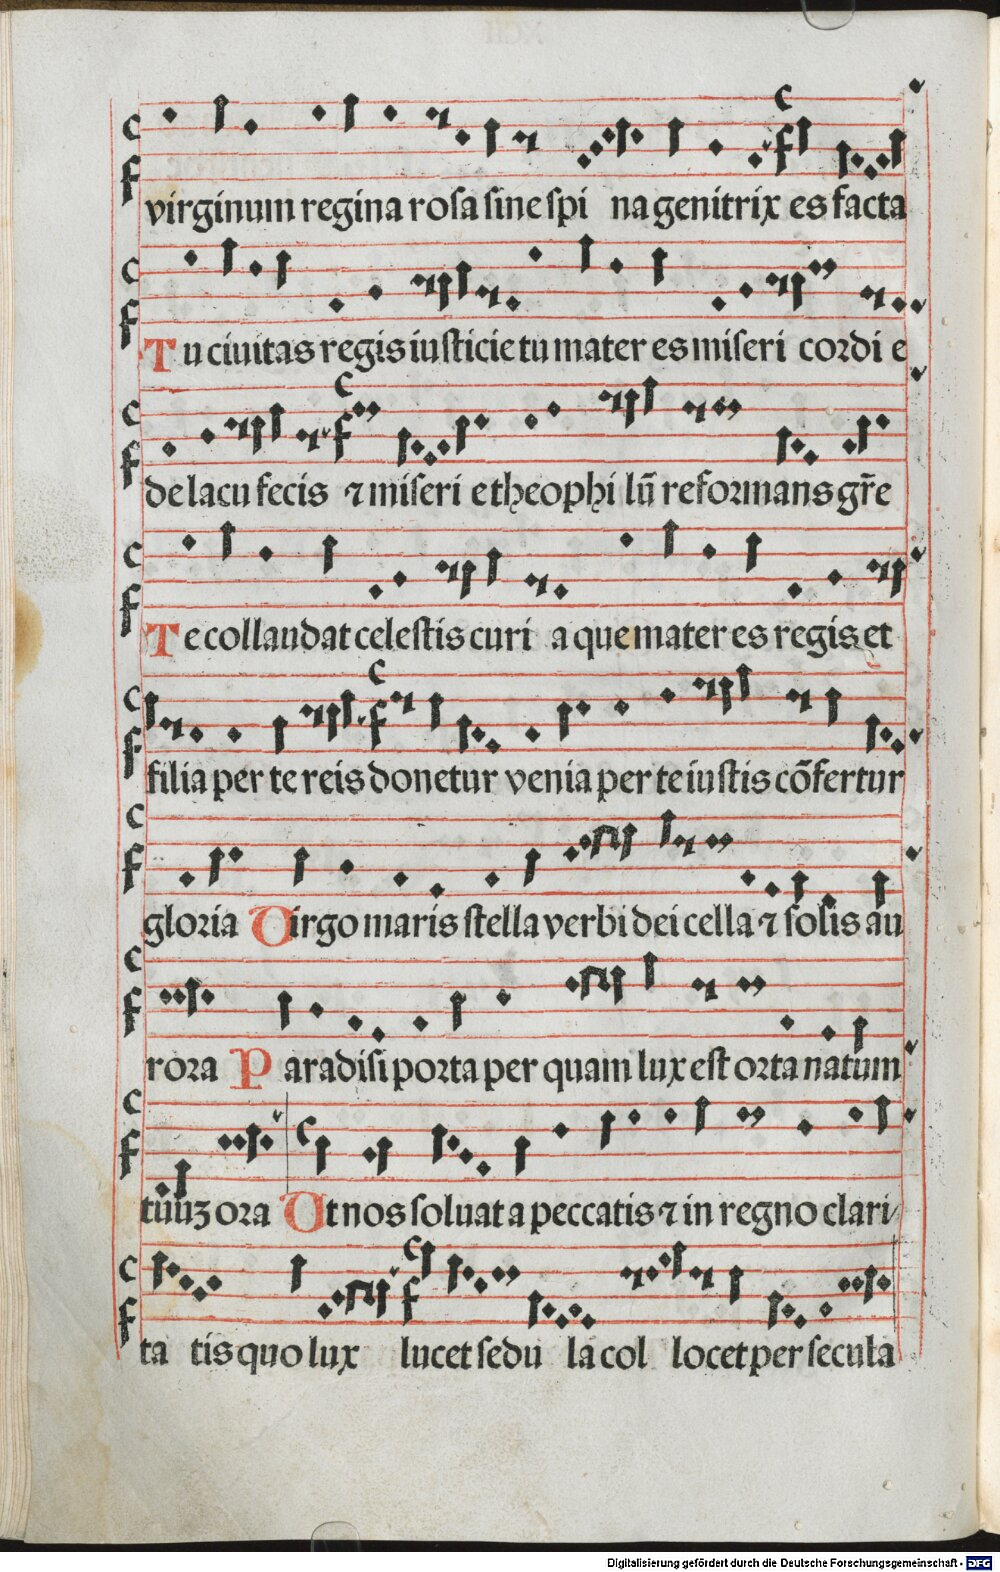 virginum regina rosa sine spi na genitrix es facta
Tu ciuitas regis iusticie tu mater es miseri cordi e
de lacu fecis ⁊ miseri e theophi lũ reformans gr̃e
Te collaudat celestis curi a que mater es regis et
filia per te reis donetur venia per te iustis cõfertur
gloria Virgo maris stella verbi dei cella ⁊ solis au
rora Paradisi porta per quam lux est orta natum
tuuʒ ora Vt nos soluat a peccatis ⁊ in regno clari
ta tis quo lux lucet sedu la col locet per secula
Digitalisierung gefördert durch die Deutsche Forschungsgemeinschaft - DFG